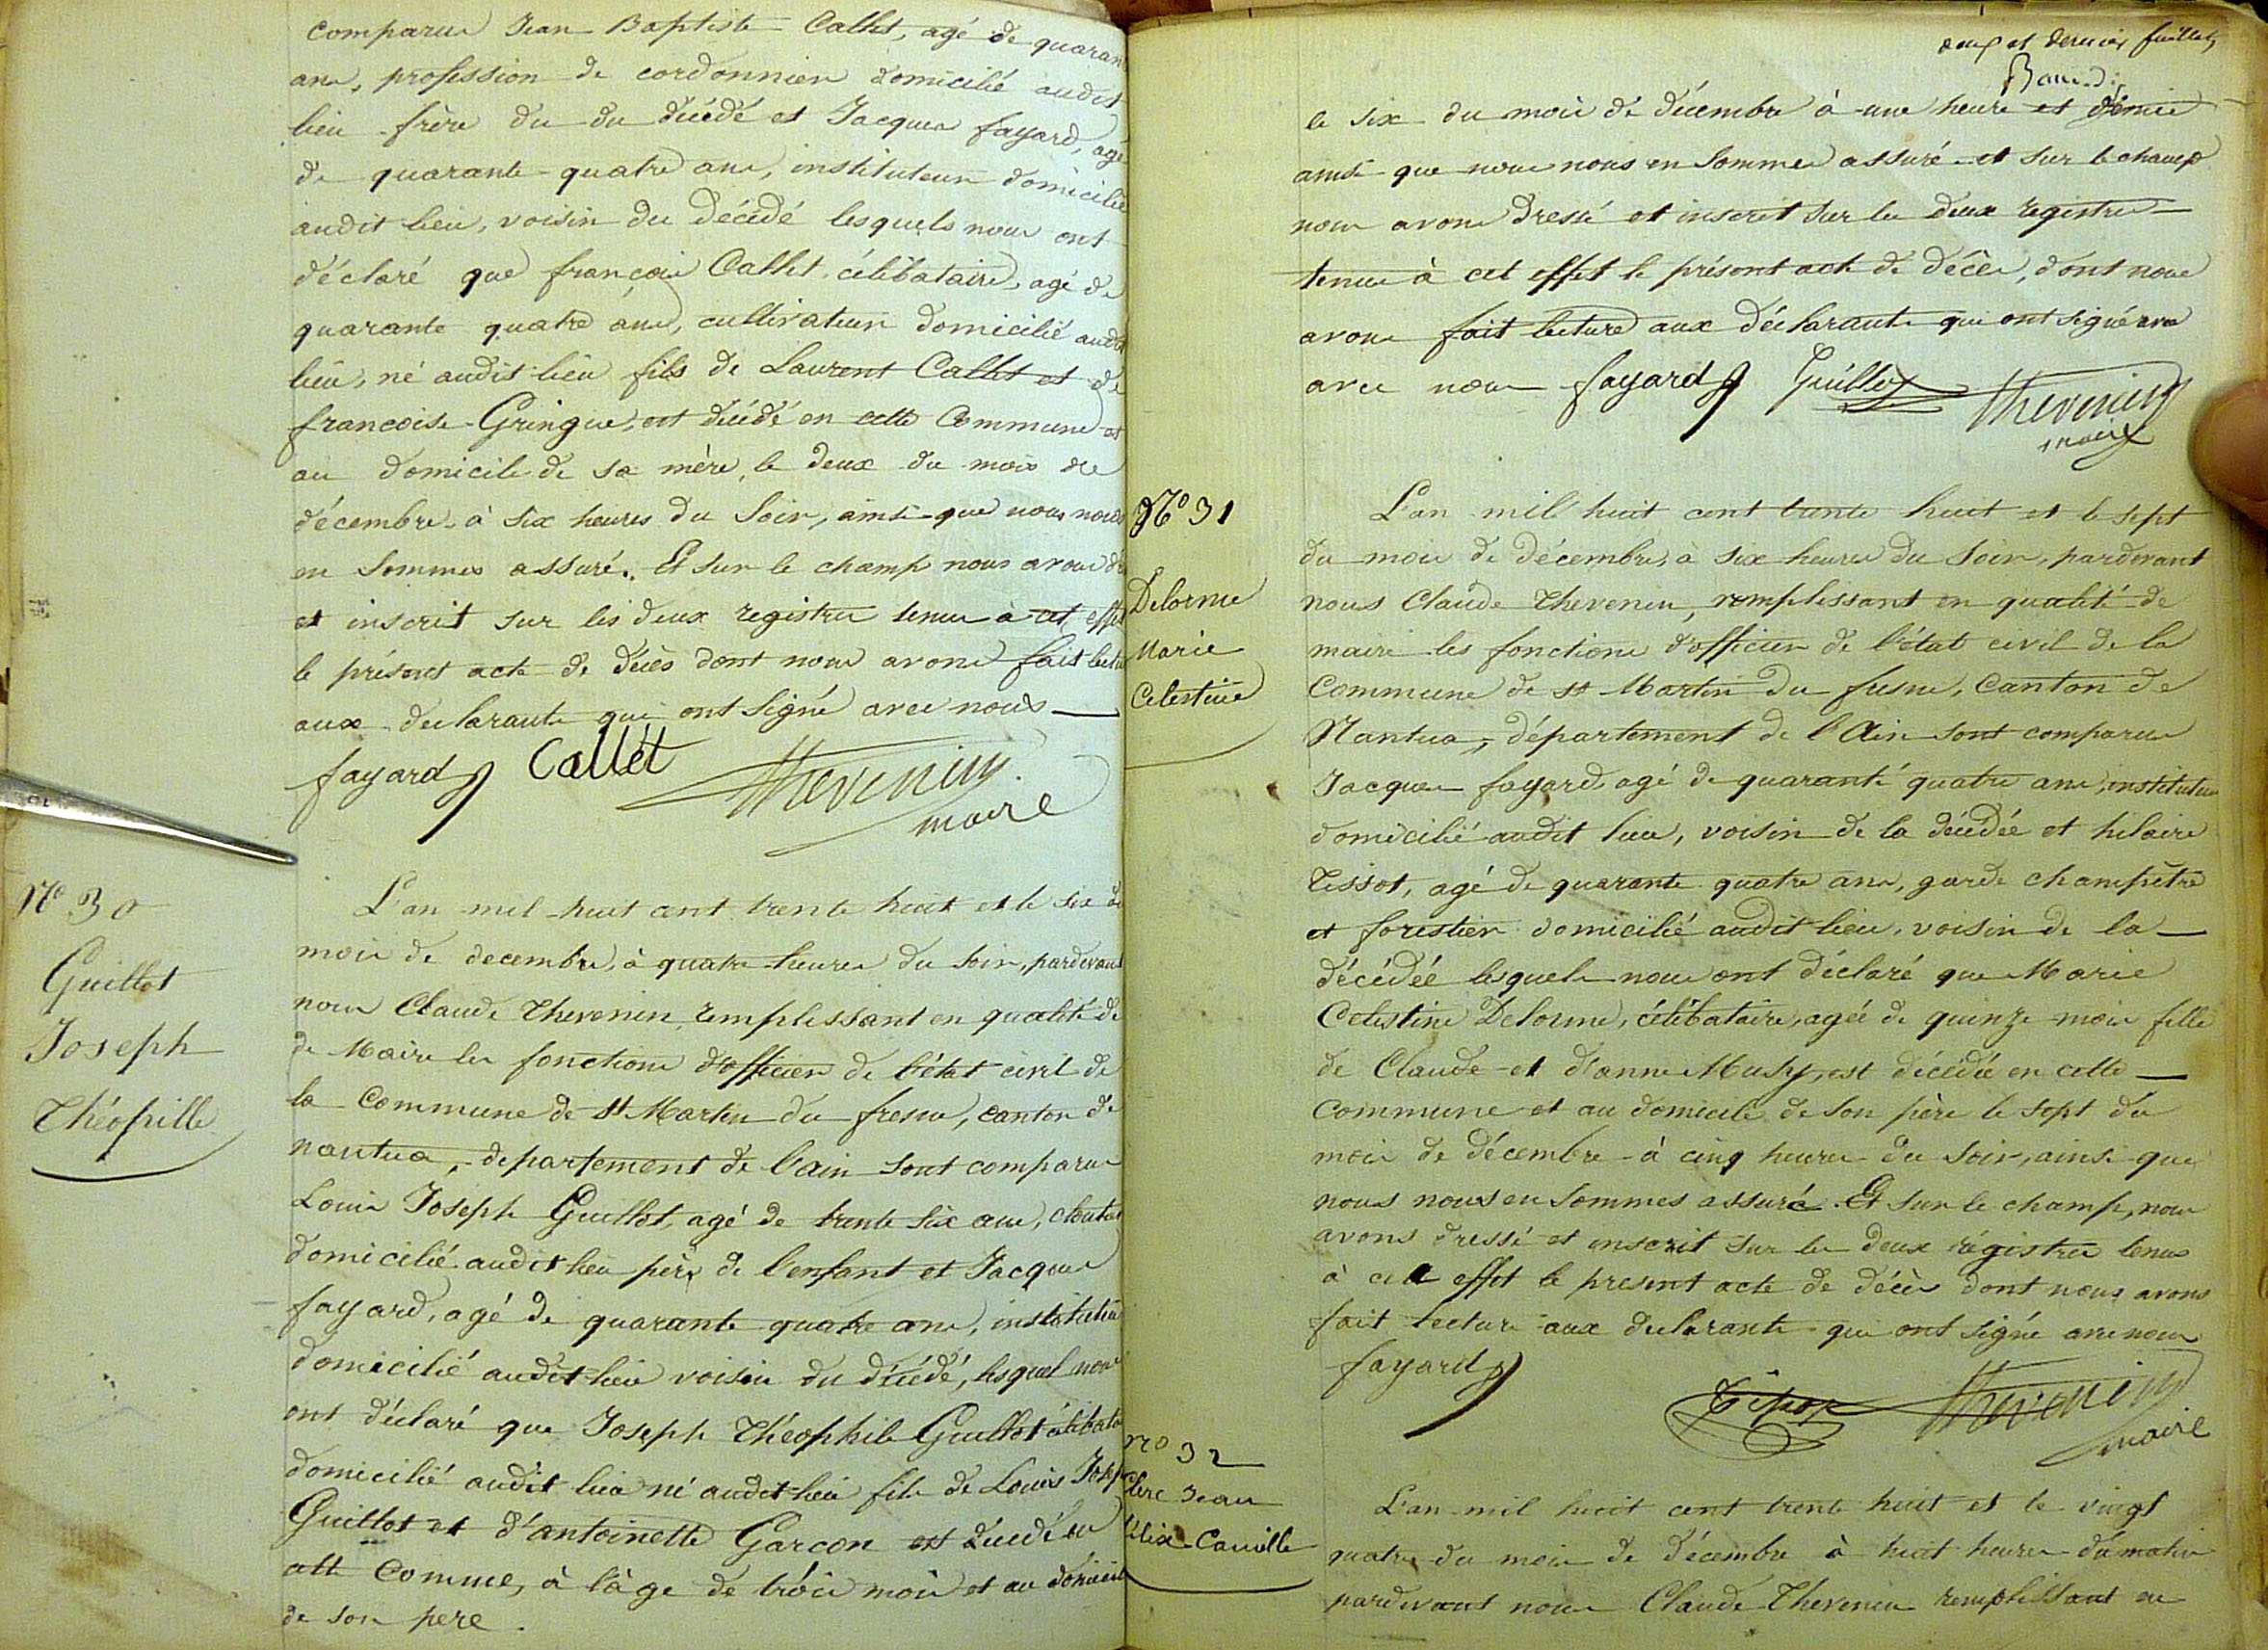 comparus Jean Baptiste Callet, agé de quarante
ans, profession de cordonnier domicilié audit
lieu frère du du décédé et Jacques fayard, agé
de quarante-quatre ans, instituteur domicilié
audit lieu, voisin du décédé lesquels nous ont
déclaré que françois Callet, célibataire, agé de
quarante quatre ans, cultivateur domicilié audit
lieu, né audit lieu fils de Laurent Callet et de
francoise Gringue, est décédé en cette Commune et
au domicile de sa mère, le deux du mois de
décembre, à six heures du Soir, ainsi que nous nous
en Sommes assuré. Et sur le champ nous avons
et inscrit sur les deux registres tenus à cet effet
le présent acte de décès dont nous avons fait lectu
aux declarants qui ont signé avec nous
fayard Callét Thevenin
maire
N° 30
Guillot
Joseph
Théopille
L'an mil-huit cent trente huit et le six du
mois de decembre, à quatre heures du soir, pardevant
nous Claude Thevenin, remplissant en qualité de
de Maire les fonctions d'officier de l'état civil de
la Commune de St Martin du fresne, canton de
nantua, departement de l'ain sont comparus
Louis Joseph Guillot, agé de trente six ans, cloutier
domicilié audit lieu père de l'enfant et Jacques
fayard, agé de quarante quatre ans, instituteur
domicilié audit lieu voisin du décédé, lesquel nous
ont déclaré que Joseph Théophile Guillot célibata
domicilié audit lieu né audit lieu fils de Louis Josep
Guillot et d'antoinette Garcon est décédé en
cett Comme, à l'âge de trois mois et au domicil
de son pere.
deux et dernier feuillet,
le six du mois de décembre à une heure et demie
ainsi que nous nous en Sommes assuré et sur le champ
nous avons dressé et inscrit sur les deux registres
tenus à cet effet le présent acte de décès, dont nous
avons fait lecture aux déclarants qui ont signé avec
avec nous fayard Guillot Thevenin
maire
N° 31
Delorme
Marie
Celestine
L'an mil huit cent trente huit et le sept
du mois de décembre, à six heures du Soir, pardevant
nous Claude Thevenin, remplissant en qualité de
maire les fonctions d'officier de l'état civil de la
Commune de st Martin du fresne, Canton de
Nantua, département de l'Ain sont comparus
Jacques fayard, agé de quarante quatre ans, instituteur
domicilié audit lieu, voisin de la décédée et hilaire
Tissot, agé de quarante quatre ans, garde champêtre
et forestier domicilié audit lieu, voisin de la
décédée lesquels nous ont déclaré que Marie
Celestine Delorme, célibataire, agée de quinze mois fille
de Claude et d'anne Musy, est décédée en cette
Commune et au domicile de son père le sept du
mois de décembre à cinq heures du Soir, ainsi que
nous nous en Sommes assuré. Et sur le champ, nous
avons dressé et inscrit sur les deux régistres tenus
à cet effet le present acte de décès dont nous avons
fait lecture aux declarants qui ont signé avec nous
fayard Tissot Thevenin
maire
no 32
Clerc Jean
félix Camille
L'an mil huit cent trente huit et le vingt
quatre du mois de Décembre à huit heures du matin
pardevant nous Claude Thevenin remplissant en